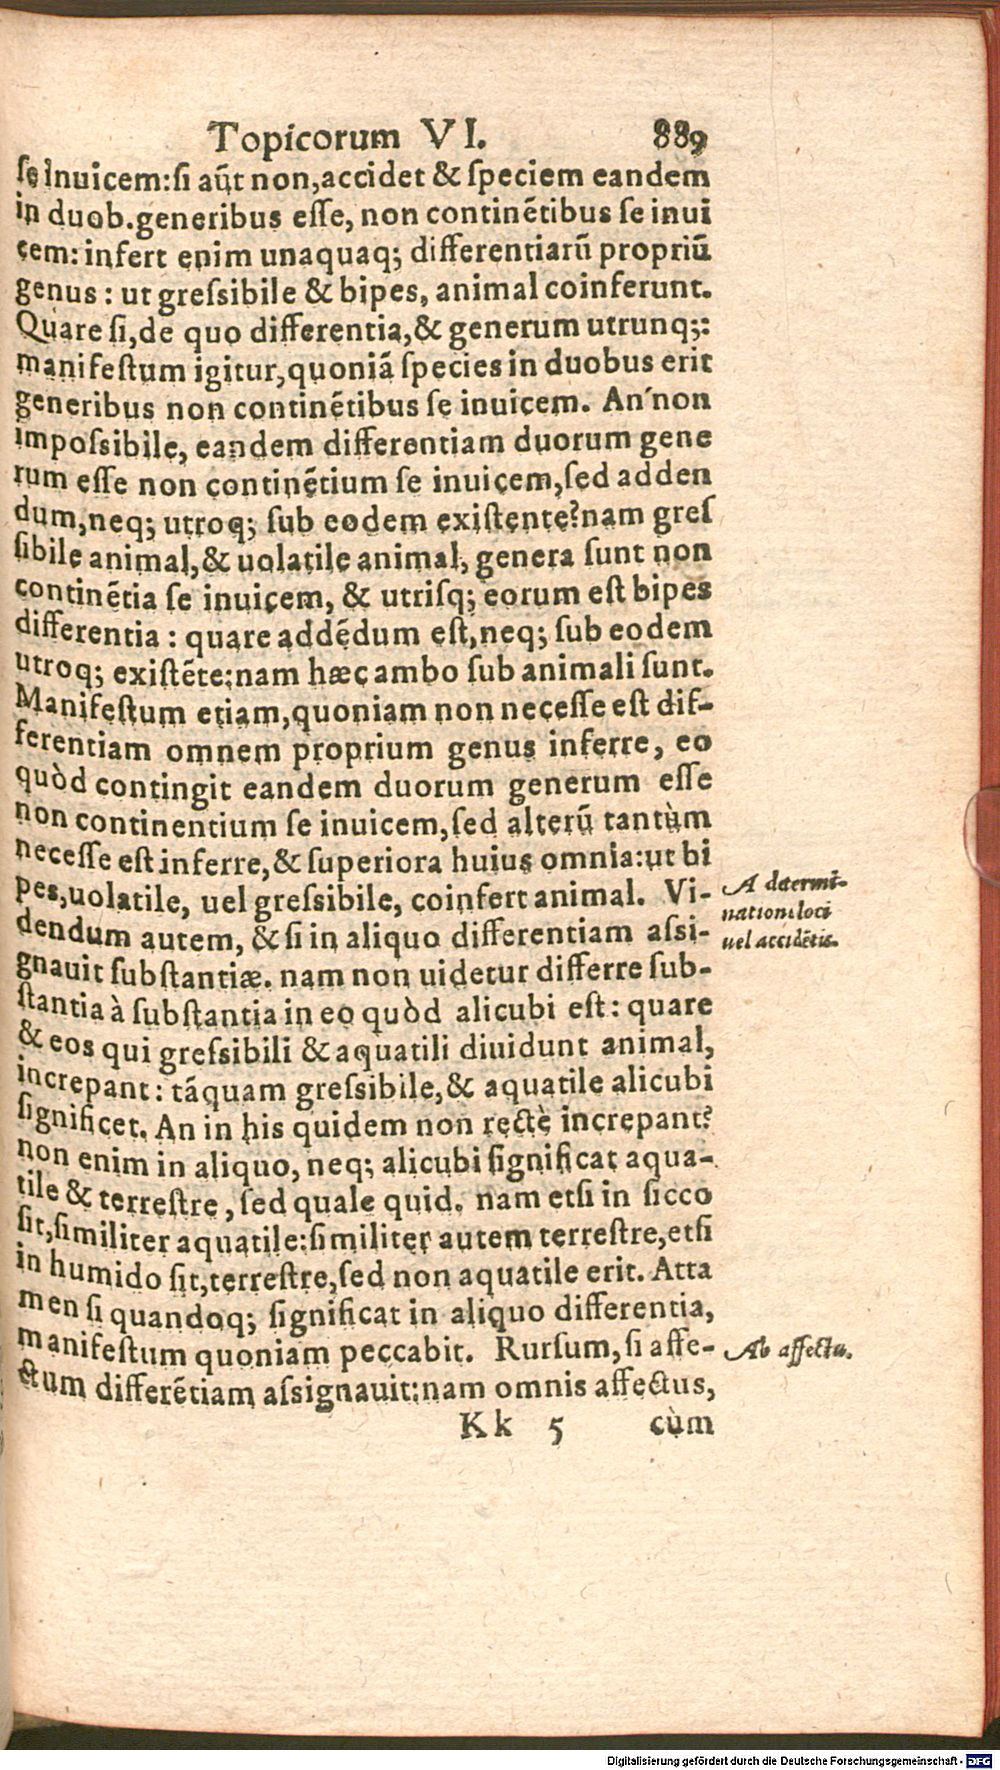 Topicorum VI. 889
se inuicem: si aūt non, accidet & speciem eandem
in duob. generibus esse, non continētibus se inui
cem: infert enim unaquaq; differentiarū propriū
genus: ut gressibile & bipes, animal coinferunt.
Quare si, de quo differentia, & generum utrunq;:
manifestum igitur, quoniā species in duobus erit
generibus non continētibus se inuicem. An non
impossibile, eandem differentiam duorum gene
rum esse non continētium se inuicem, sed adden
dum, neq; utroq; sub eodem existente? nam gres
sibile animal, & uolatile animal, genera sunt non
continētia se inuicem, & utrisq; eorum est bipes
differentia: quare addēdum est, neq; sub eodem
utroq; existēte: nam hæc ambo sub animali sunt.
Manifestum etiam, quoniam non necesse est dif-
ferentiam omnem proprium genus inferre, eo
quòd contingit eandem duorum generum esse
non continentium se inuicem, sed alterū tantùm
necesse est inferre, & superiora huius omnia: ut bi
pes, uolatile, uel gressibile, coinfert animal. Vi-
dendum autem, & si in aliquo differentiam assi-
gnauit substantiæ. nam non uidetur differre sub-
stantia à substantia in eo quòd alicubi est: quare
& eos qui gressibili & aquatili diuidunt animal,
increpant: tāquam gressibile, & aquatile alicubi
significet. An in his quidem non rectè increpant?
non enim in aliquo, neq; alicubi significat aqua-
tile & terrestre, sed quale quid. nam etsi in sicco
sit, similiter aquatile: similiter autem terrestre, etsi
in humido sit, terrestre, sed non aquatile erit. Atta
men si quandoq; significat in aliquo differentia,
manifestum quoniam peccabit. Rursum, si affe-
ctum differētiam assignauit: nam omnis affectus,
Kk 5 cùm
A determi-
nationi loci
uel accidētis.
Ab affectu.
Digitalisierung gefördert durch die Deutsche Forschungsgemeinschaft - DFG